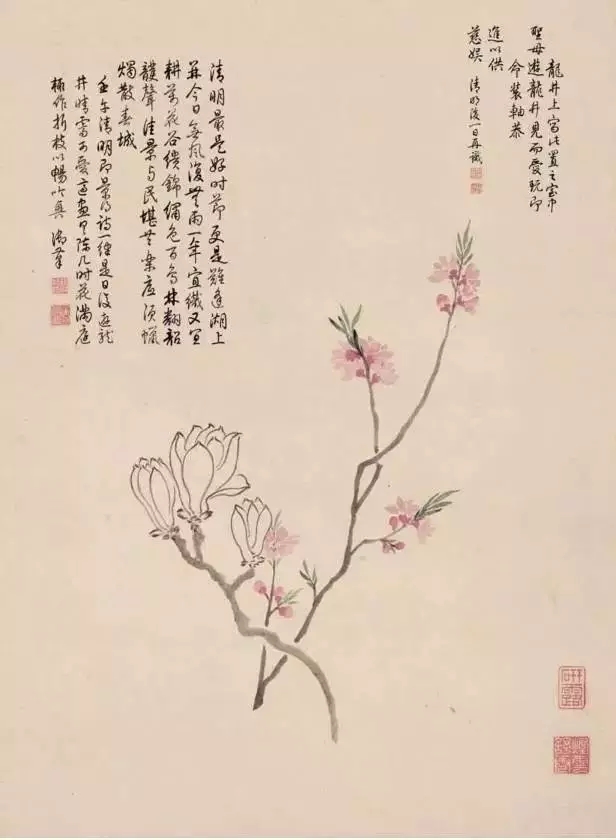 龍井上寫此置之室中
聖母遊龍井見而愛玩即
命裝軸恭
進以供
慈娛 清明後一日再識
清明最是好時節更是難逢湖上
并今日無風復無雨一年宜織又宜
耕萬花谷繢錦綢色百鳥林翻韶
頀聲佳景與民堪共樂底須蠟
燭散春城
壬午清明即景得詩一律是日復遊龍
井晴雲可愛適畫具陳几時花滿庭
作折枝以暢吟興 御筆